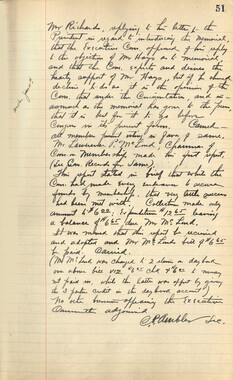 51
Mr Richard, replying to his letter to the
President in regard to introducing the memorial,
that the Executive Com. approved of his reply
to the objection of Mr Hays as to memorials
and that the Com. expects and desires the
hearty support of Mr Hays, but if he should
decline to do so, it is the opinion of the
Com that under the Constitution and in-
asmuch as the memorial has gone to the
that it is best for it to go before
in its present form. Carried—
all members present voting in favor of same.
Mr Lawrence P. McLind, Chairman of
Com on Membership made his first report,
(See Com Records for same)
This report stated in brief that while the
Com. had made every endeavor to secure
funds by membership that very little success
had been met with. Collection made only
amount to $6.00; Expenditures $12.65 leaving
a balance of $6.65 due Mr McLind.
It was moved that the report be received
and adopted and Mr McLinds bill of $6.65
be paid. Carried.
(Mr McLind was charged to 2 in daybook
on above bill viz. $6.65 and $6.00 money
not paid in, while the latter was offset by giving
the 3 parties credit in the daybook account)
No other business appearing the Executive
Committee adjourned.
Sec.